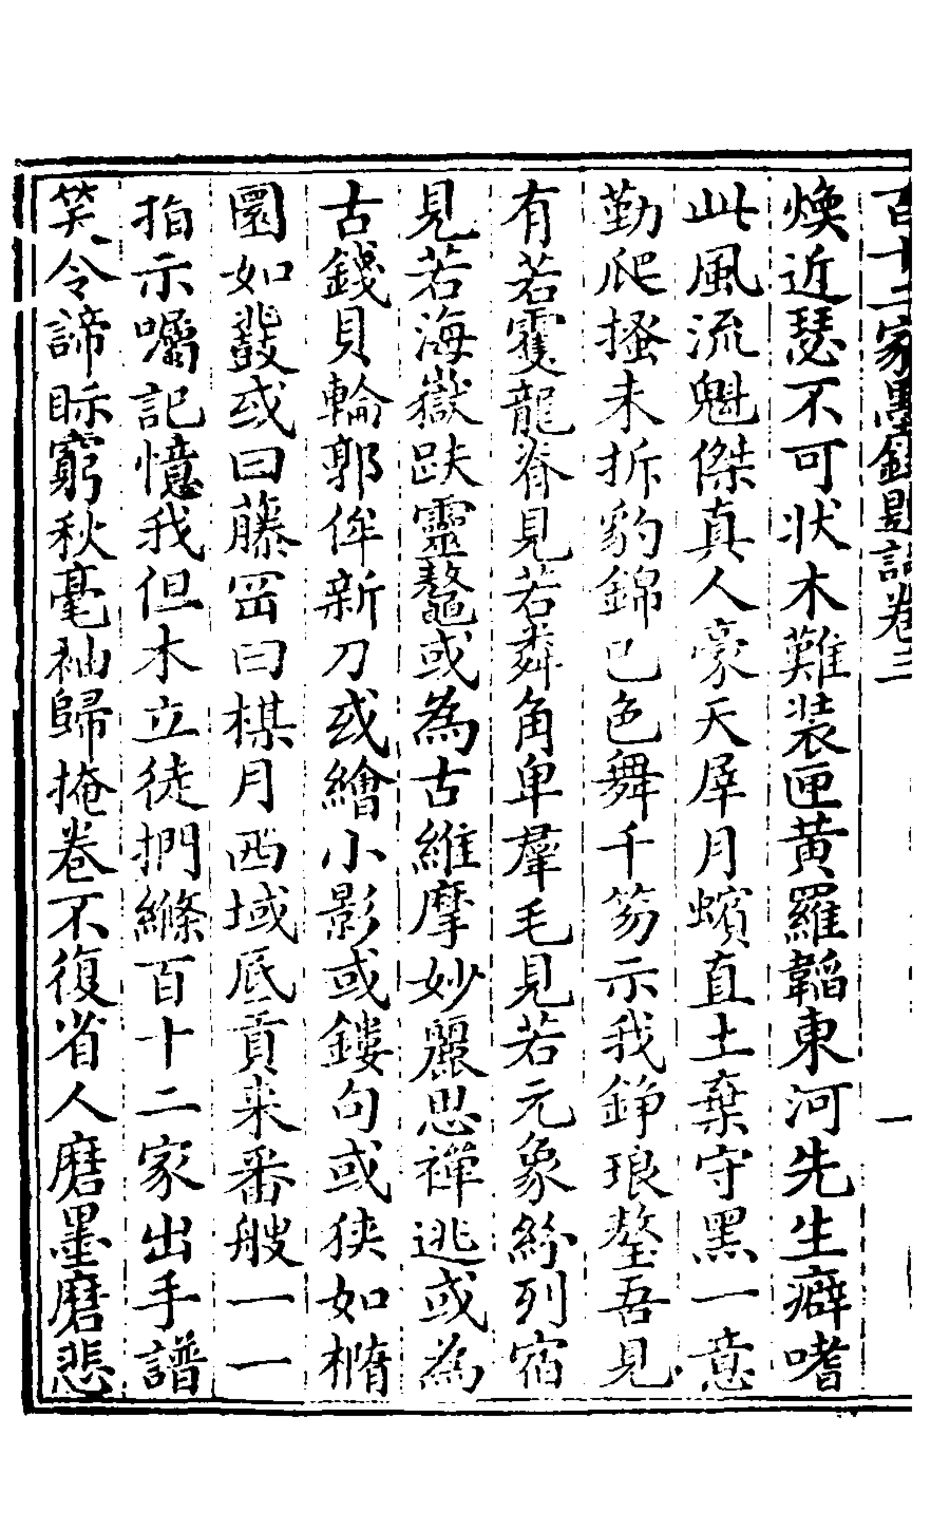 百十二家墨錄題詞卷三
煥近瑟不可狀木難装匣黃羅韜東河先生癖嗜
此風流魁傑真人豪天犀月蠙直土棄守黑一意
勤爬搔未拆豹錦已色舞千笏示我錚琅璈吾見
有若䨥龍脊見若粦角卑羣毛見若元象紛列宿
見若海嶽趺靈鼇或為古維摩妙麗思禪逃或為
古錢貝輪郭侔新刀或繪小影或鏤句或狹如橢
圜如鼗或曰藤罡曰棋月西域厎貢来番艘一一
指示囑記憶我但木立徒捫絛百十二家出手譜
笑令諦眎窮秋毫袖歸掩卷不復省人磨墨磨悲
一